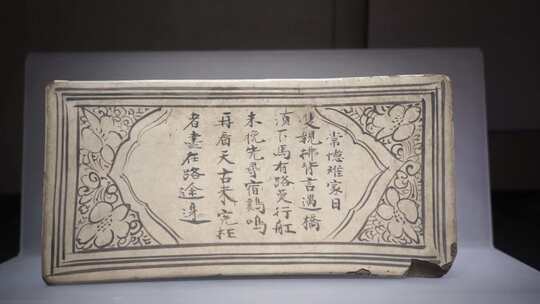 常憶離家日
雙親拂背言遇橋
湏下馬有路莫行舡
未晚先尋宿鷄鳴
再看天古來冤枉
者盡在路途邊